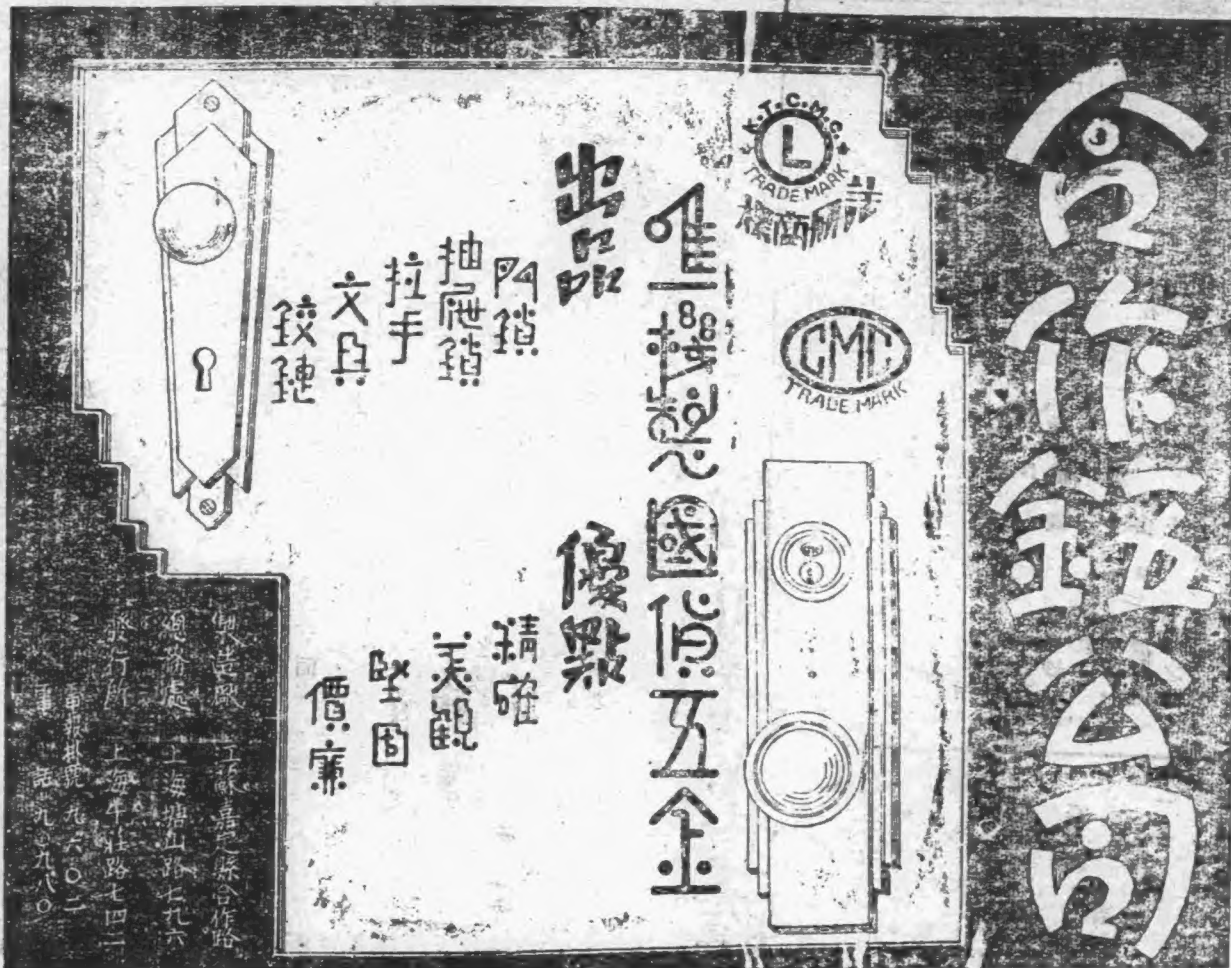 合作五金公司
K.T.C.M.C.
L
TRADE MARK
註冊商標
CMC
TRADE MARK
唯一機製國貨五金
出品
門鎖
抽屜鎖
拉手
文具
鉸鏈
優點
精確
美觀
堅固
價廉
製造廠 江蘇嘉定縣合作路
務處 上海塘山路七九六
發行所 上海牛莊路七四二
電報掛號 九六〇二
電話 九一九八〇